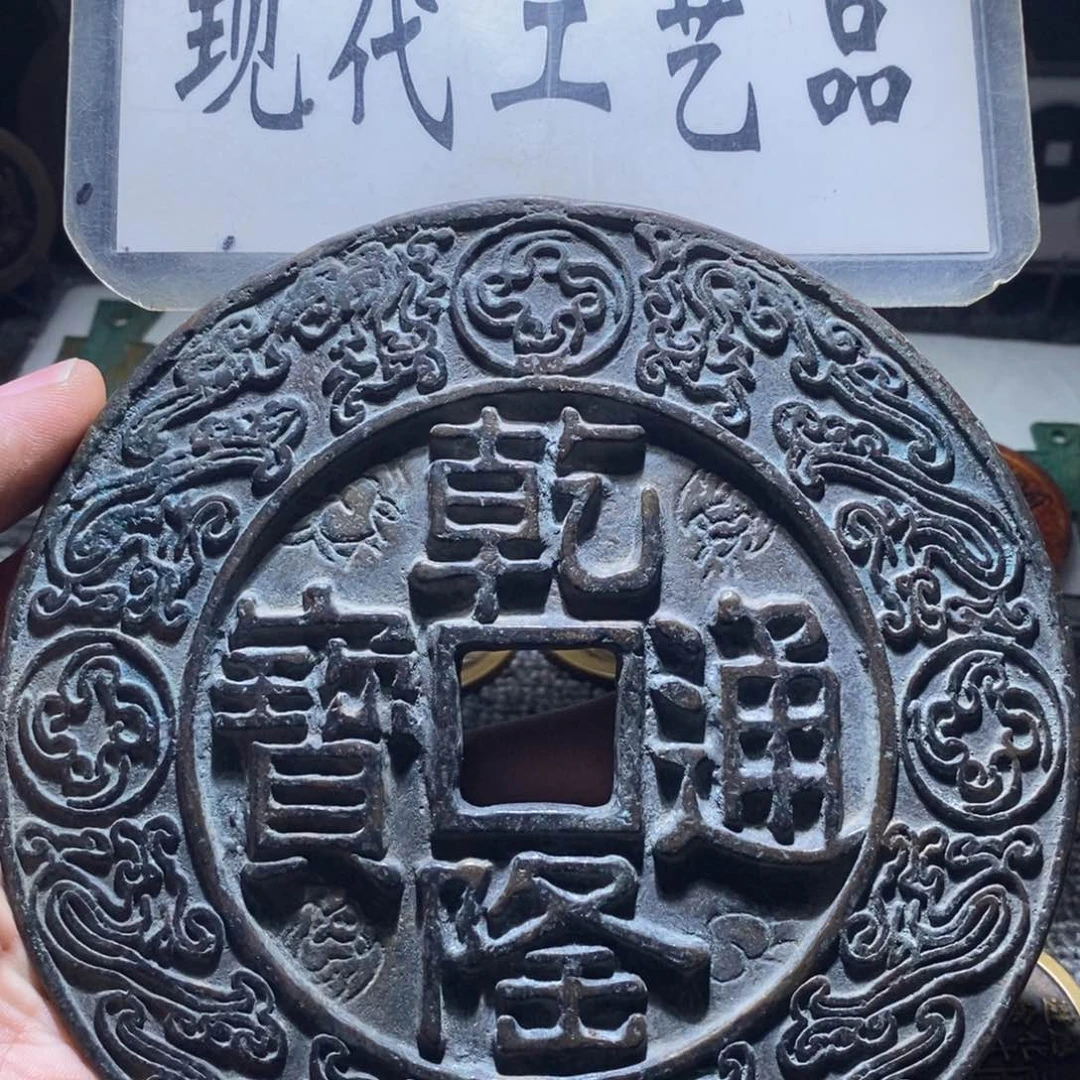 现代工艺品
乾隆通寳